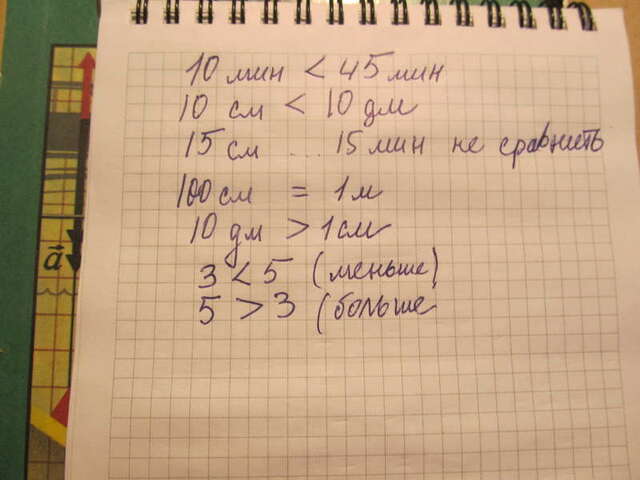 10 мин < 45 мин
10 см < 10 дм
15 см ... 15 мин не сравнить
100 см = 1 м
10 дм > 1 см
3 < 5 (меньше)
5 > 3 (больше
a